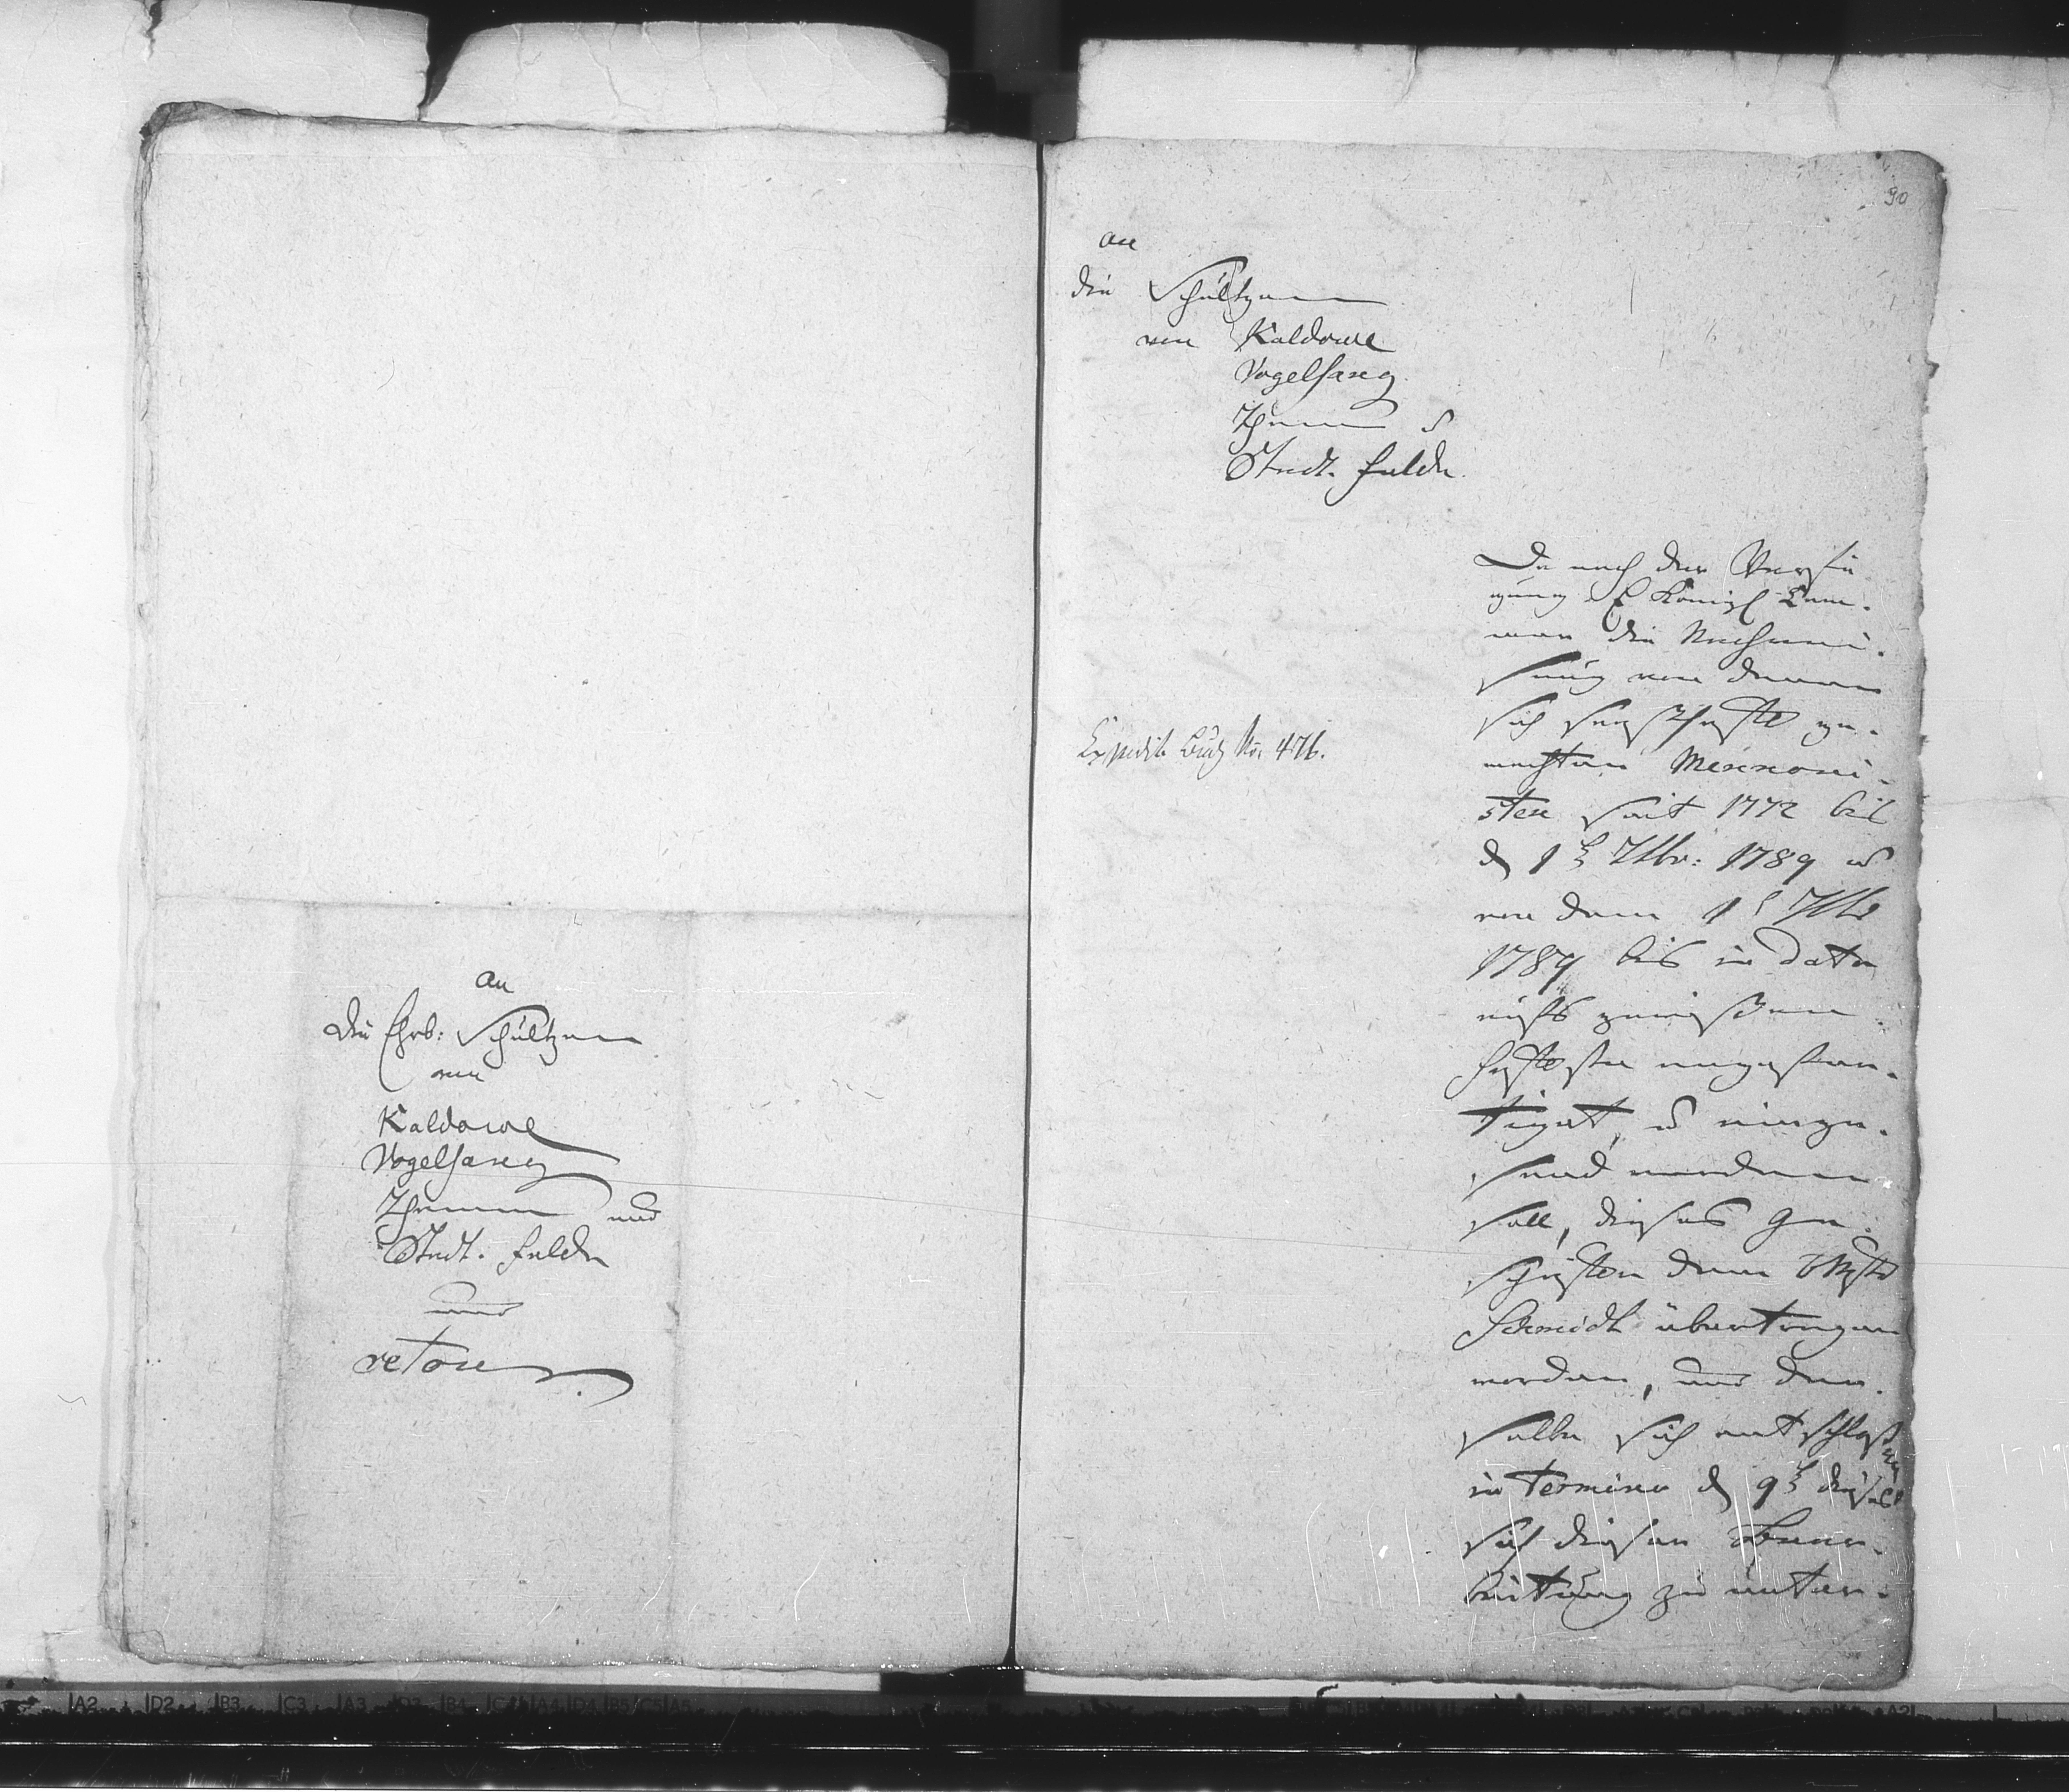 An
Die Ehrb: Schültzen
von
Kaldowe
Vogelsang
Thenen und
Stadt. Felde
und
retour
90
an
die Schültzen
von Kaldowe
Vogelsang
u
Stadt. Felde
Expedit Buch No. 476.
Da nach der Verfü
gung E Königl Cam-
mer die Nachwei-
sung von denen
sich seszhafft ge-
machten Mennoni-
sten seit 1772 bis
d 1t 7tbr: 1789 u
von dem 1t 7tb
1789 bis in dato
aufs
angefer-
tiget, u einge-
sand werden
soll, dieses Ge-
schäfte dem
Schmidt übertragen
worden, und der-
selbe sich entschloßen
in Termino d 9t dieses
sich dieser Bear-
beitung zu unter-